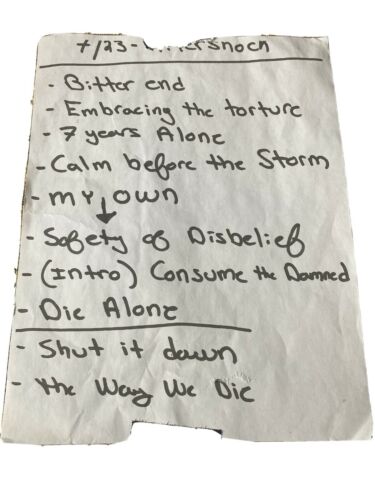 - Bitter end
- Embracing the torture
- 7 years Alone
- Calm before the Storm
- MY OWN
- Safety of Disbelief
- (Intro) Consume the Damned
- Die Alone
- Shut it down
- the Way We Die